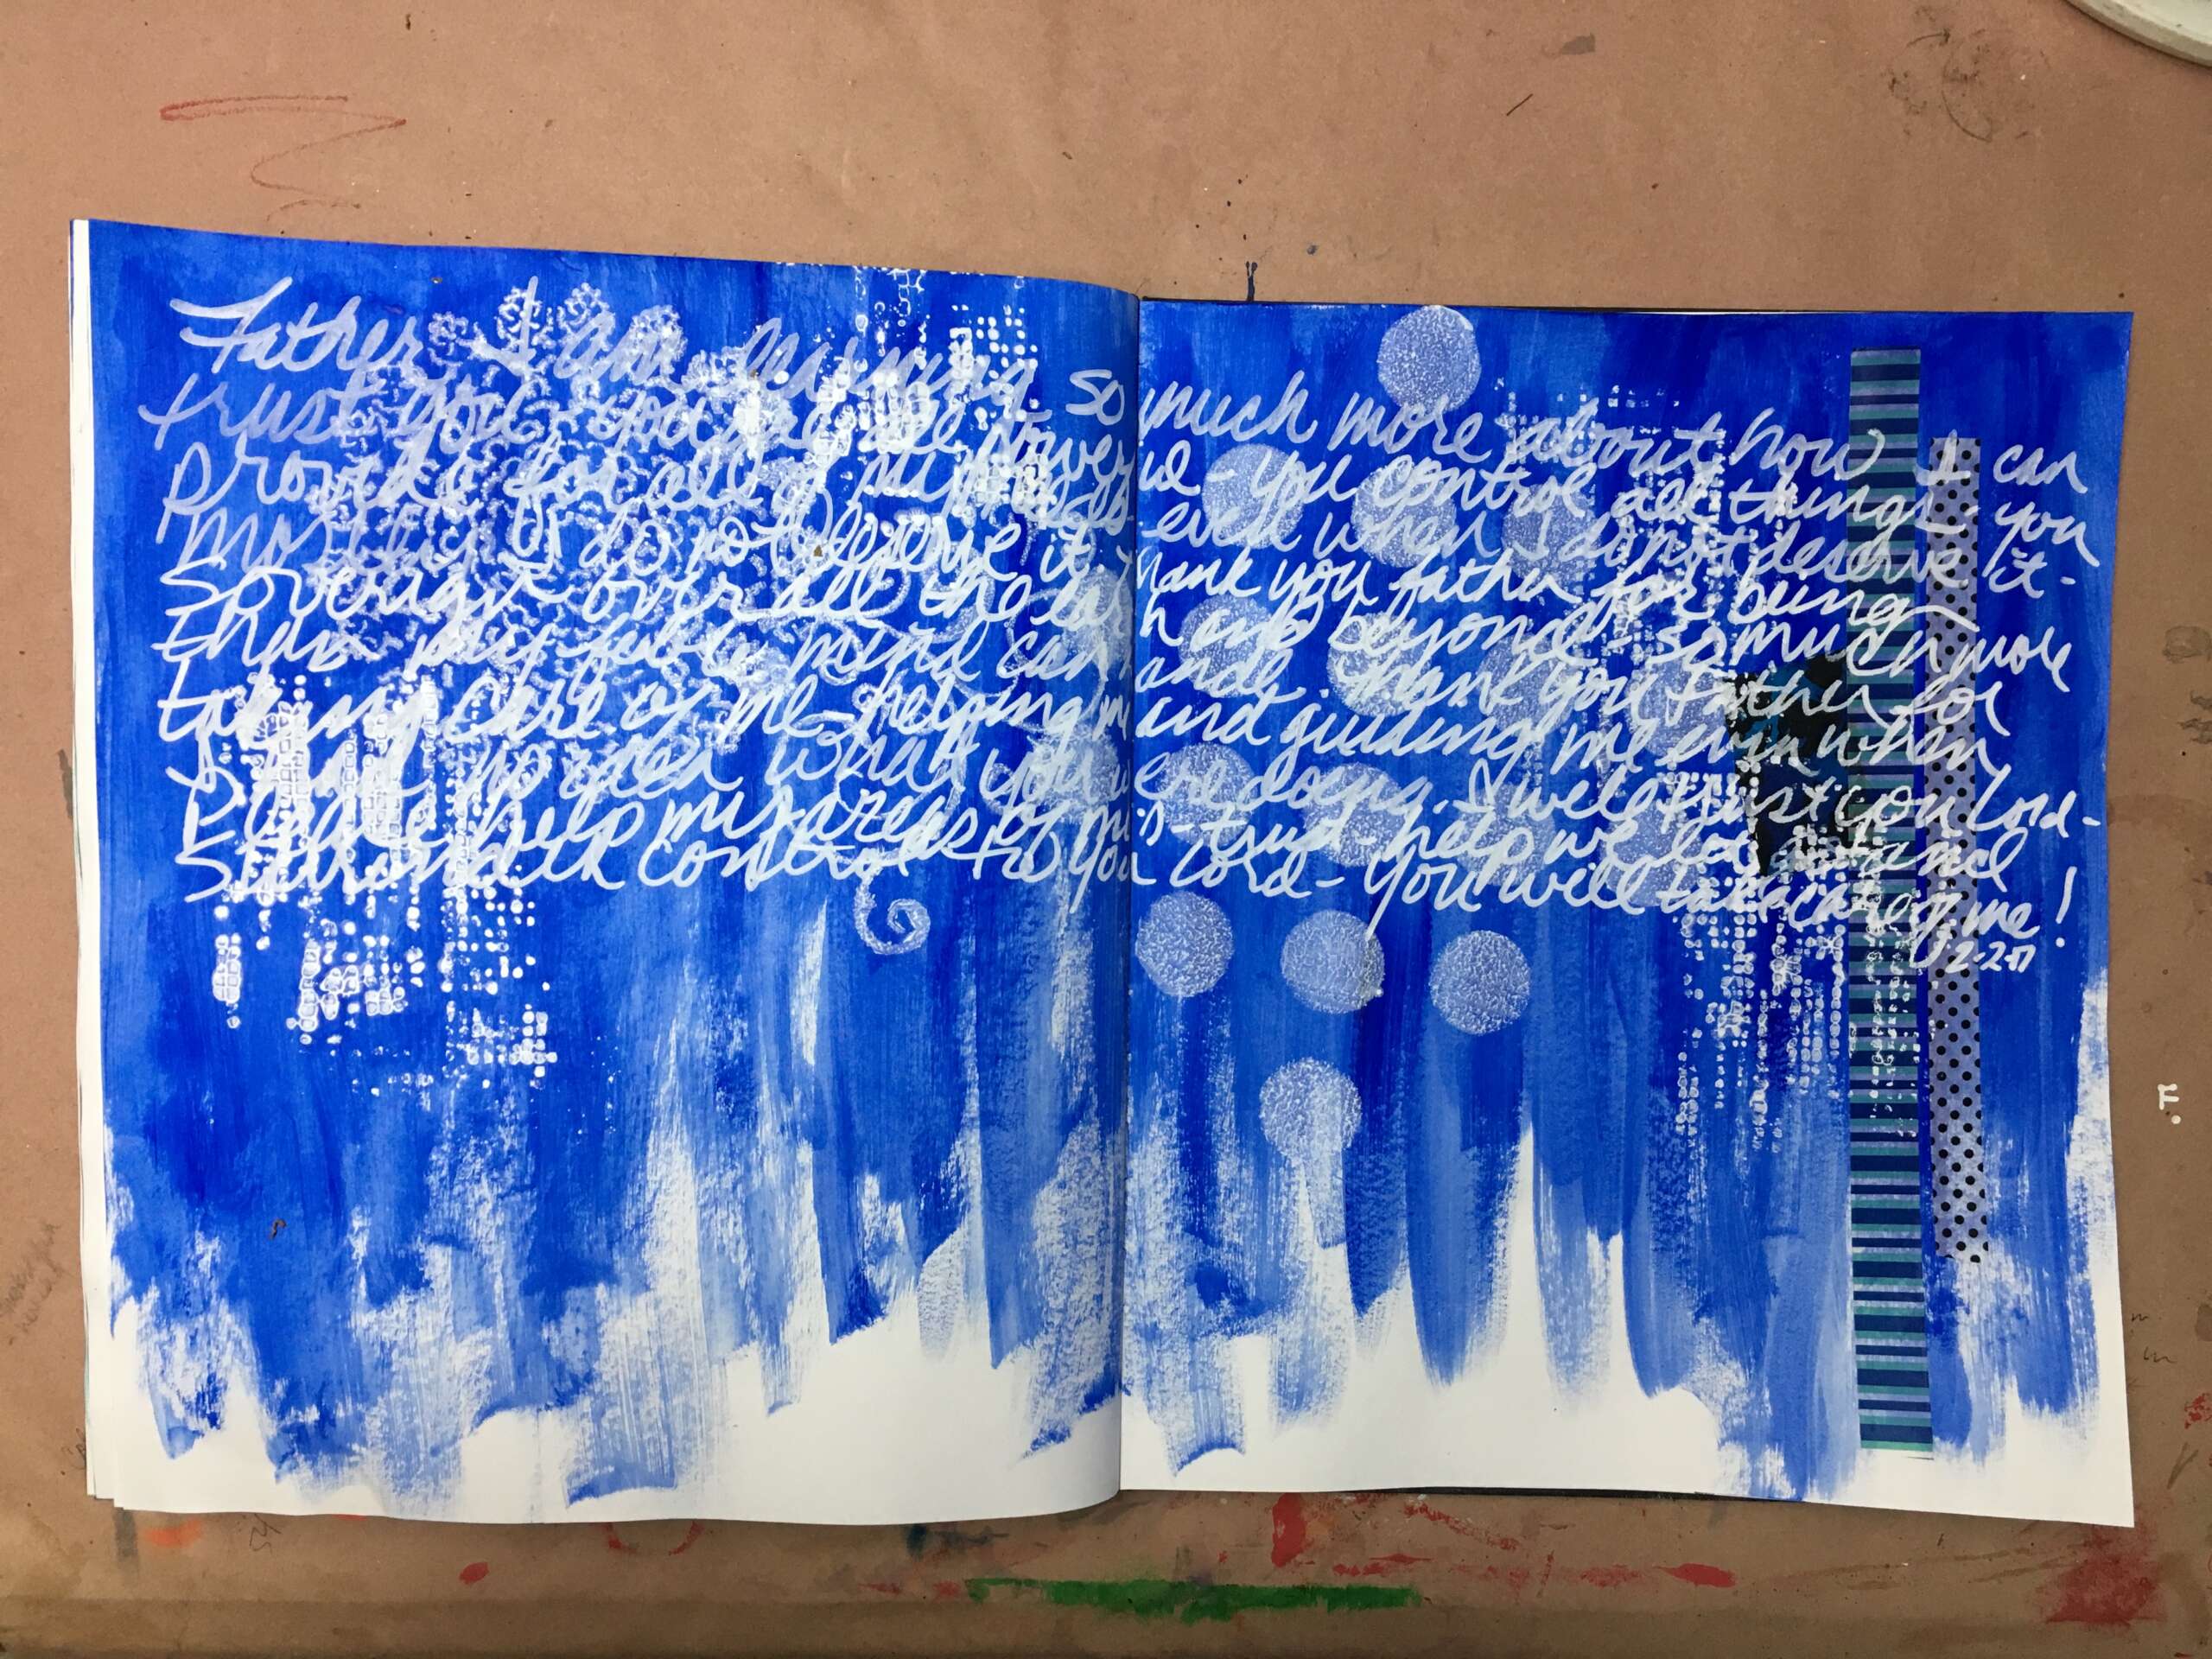 Father I am learning so much more about how I can
trust you - you are all powerful - you control all things - you
provide for all of my needs even when I do not deserve it -
mostly I do not deserve it - Thank you father for being
Sovereign over all the earth and beyond - so much more
than my feeble mind can handle. Thank you Father for
taking care of me - helping me and guiding me even when
I have no idea what you were doing. I will trust you Lord -
Please help my areas of mis-trust - help me let go and
Surrender control to you Lord - You will take care of me!
2-2-17